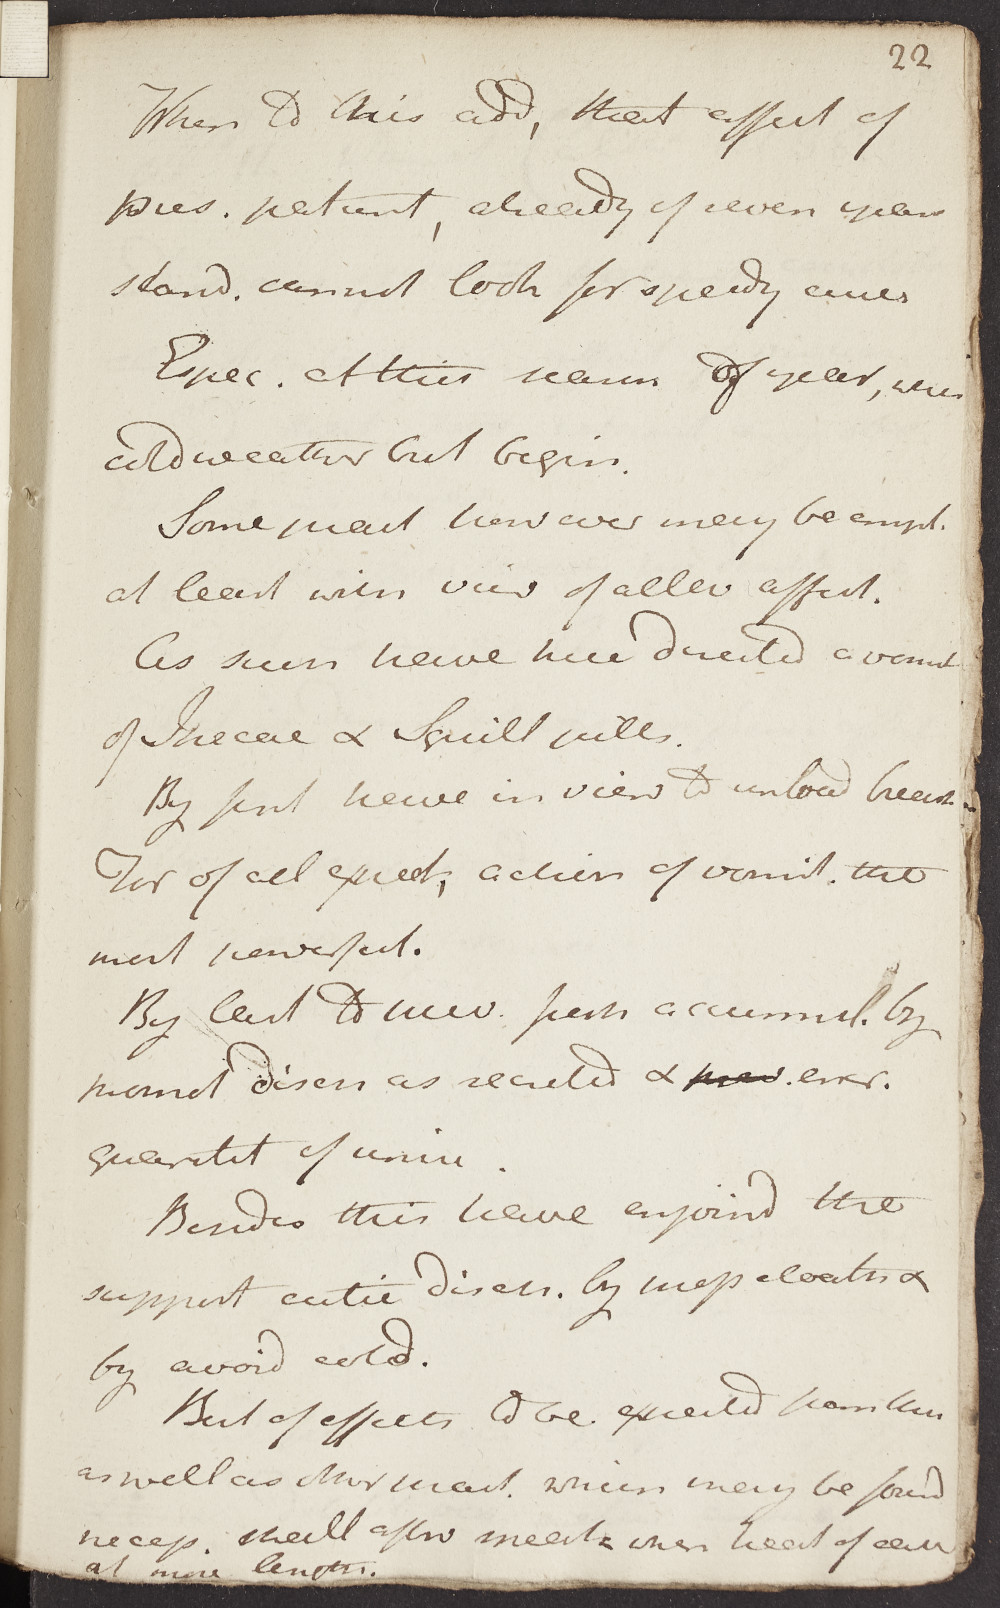 22
When to this add, that affect of
pres. patient, already of seven years
stand. cannot look for speedy cure
Espec. at this season of year, when
cold weather but begin.
Some pract however may be empl.
at least with view of allev affect.
As such have here directed a vomit
of Ipecac & Squill pills.
By first have in view to unload breast
For of all expect, action of vomit. the
most powerful.
By last to prev. fresh accumul. by
promot disch as secreted & prev. encr.
quantit of urine.
Besides this have enjoind the
support cutic disch. by cloaths &
by avoid cold.
But of effects to be expected from this
as well as other pract. which may be found
necess. shall after speak when treat of case
at more length.